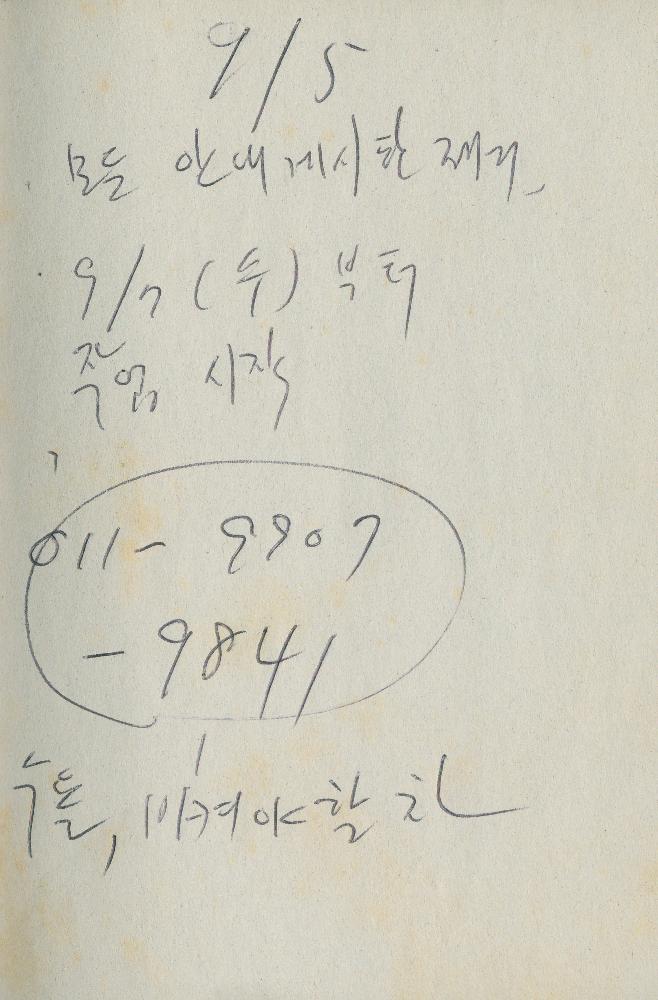 9/5
모든 안내 게시한 재거,
9/7 (수) 부터
작업 시작
011- 9907
- 9841
비켜야 할 차